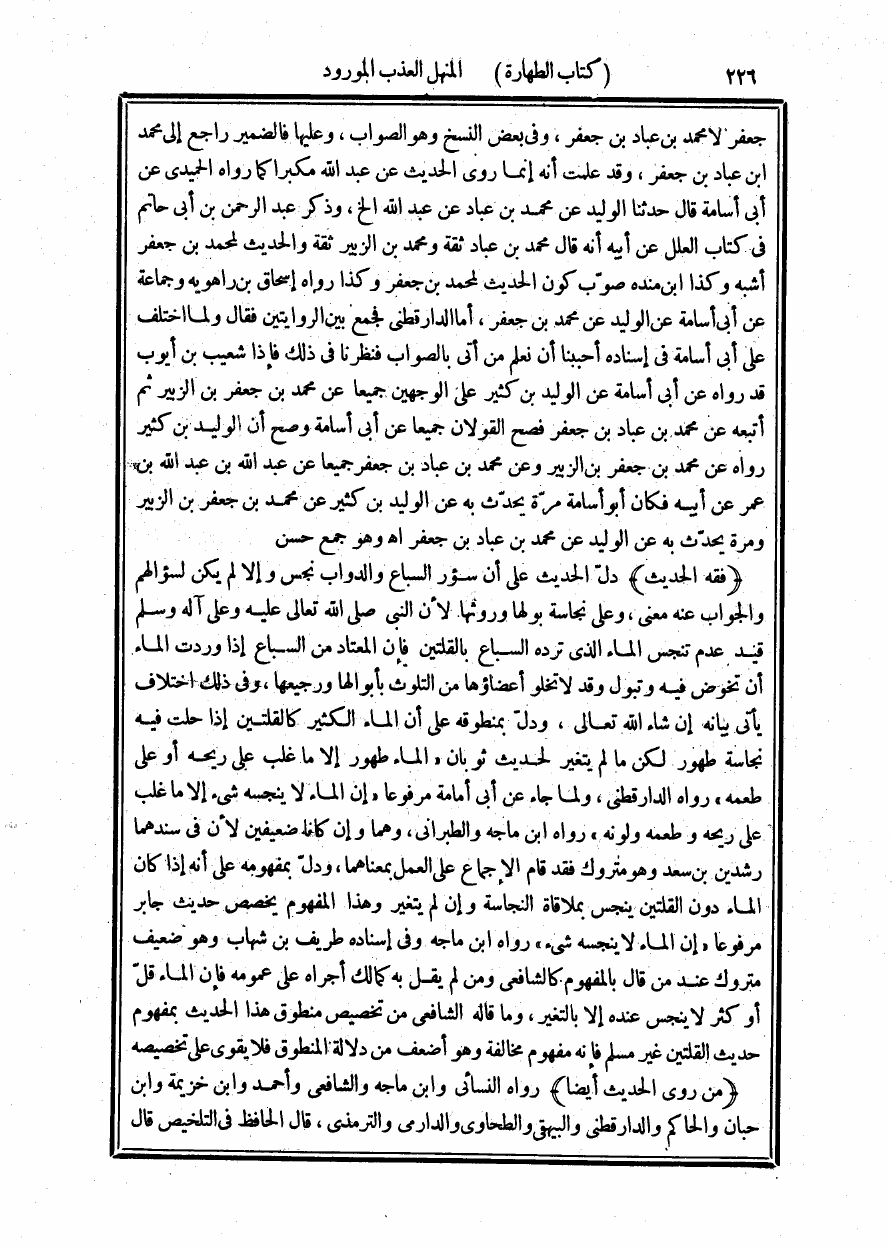 ٢٢٦ (كتاب الطهارة) المنهل العذب المورود
جعفر لا محمد بن عباد بن جعفر ، وفى بعض النسخ وهو الصواب ، وعليها فالضمير راجع إلى محمد
ابن عباد بن جعفر ، وقد علمت أنه إنما روى الحديث عن عبد الله مكبرا كما رواه الحميدى عن
أبى أسامة قال حدثنا الوليد عن محمد بن عباد عن عبد الله الخ ، وذكر عبد الرحمن بن أبى حاتم
فى كتاب العلل عن أبيه أنه قال محمد بن عباد ثقة ومحمد بن الزبير ثقة والحديث لمحمد بن جعفر
أشبه وكذا ابن منده صوّب كون الحديث لمحمد بن جعفر وكذا رواه إسحاق بن راهويه وجماعة
عن أبى أسامة عن الوليد عن محمد بن جعفر ، أما الدارقطنى فجمع بين الروايتين فقال ولما اختلف
على أبى أسامة فى إسناده أحببنا أن نعلم من أتى بالصواب فنظرنا فى ذلك فإذا شعيب بن أيوب
قد رواه عن أبى أسامة عن الوليد بن كثير على الوجهين جميعا عن محمد بن جعفر بن الزبير ثم
أتبعه عن محمد بن عباد بن جعفر فصح القولان جميعا عن أبى أسامة وصح أن الوليد بن كثير
رواه عن محمد بن جعفر بن الزبير وعن محمد بن عباد بن جعفر جميعا عن عبد الله بن عبد الله بن
عمر عن أبيه فكان أبو أسامة مرّة يحدّث به عن الوليد بن كثير عن محمد بن جعفر بن الزبير
ومرة يحدّث به عن الوليد عن محمد بن عباد بن جعفر اه وهو جمع حسن
﴿فقه الحديث﴾ دلّ الحديث على أن سؤر السباع والدواب نجس وإلا لم يكن لسؤالهم
والجواب عنه معنى ، وعلى نجاسة بولها وروثها لأن النبى صلى الله تعالى عليه وعلى آله وسلم
قيد عدم تنجس الماء الذى ترده السباع بالقلتين فإن المعتاد من السباع إذا وردت الماء
أن تخوض فيه وتبول وقد لا تخلو أعضاؤها من التلوث بأبوالها ورجيعها ، وفى ذلك اختلاف
يأتى بيانه إن شاء الله تعالى ، ودلّ بمنطوقه على أن الماء الكثير كالقلتين إذا حلت فيه
نجاسة طهور لكن ما لم يتغير لحديث ثوبان «الماء طهور إلا ما غلب على ريحه أو على
طعمه» رواه الدارقطنى ، ولما جاء عن أبى أمامة مرفوعا «إن الماء لا ينجسه شىء إلا ما غلب
على ريحه وطعمه ولونه» رواه ابن ماجه والطبرانى ، وهما وإن كانا ضعيفين لأن فى سندهما
رشدين بن سعد وهو متروك فقد قام الإجماع على العمل بمعناهما ، ودلّ بمفهومه على أنه إذا كان
الماء دون القلتين ينجس بملاقاة النجاسة وإن لم يتغير وهذا المفهوم يخصص حديث جابر
مرفوعا «إن الماء لا ينجسه شىء» رواه ابن ماجه وفى إسناده طريف بن شهاب وهو ضعيف
متروك عند من قال بالمفهوم كالشافعى ومن لم يقل به كمالك أجراه على عمومه فإن الماء قلّ
أو كثر لا ينجس عنده إلا بالتغير ، وما قاله الشافعى من تخصيص منطوق هذا الحديث بمفهوم
حديث القلتين غير مسلم فإنه مفهوم مخالفة وهو أضعف من دلالة المنطوق فلا يقوى على تخصيصه
﴿من روى الحديث أيضا﴾ رواه النسائى وابن ماجه والشافعى وأحمد وابن خزيمة وابن
حبان والحاكم والدارقطنى والبيهقى والطحاوى والدارمى والترمذى ، قال الحافظ فى التلخيص قال